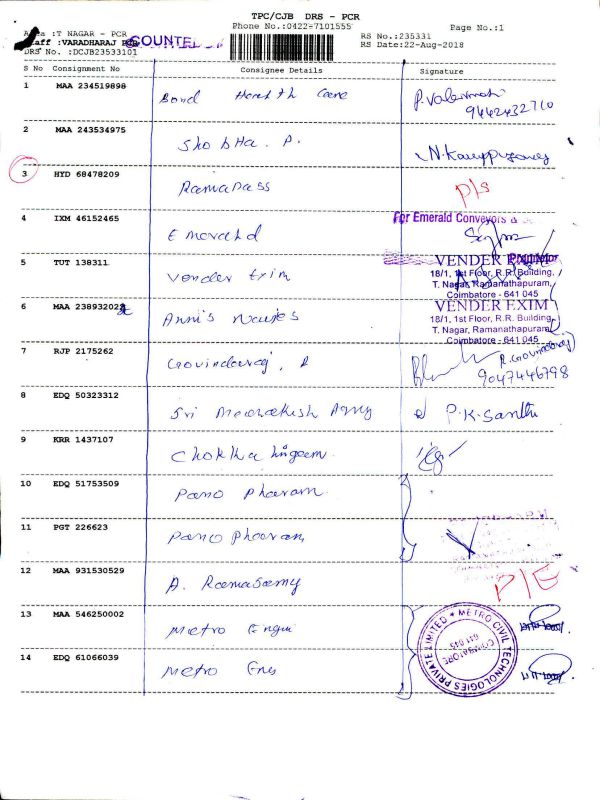 TPC/CJB DRS - PCR
Phone No.:0422-7101555 Page No.:1
:T NAGAR - PCR RS No.:235331
Staff :VARADHARAJ RS Date:22-Aug-2018
DRS No. :DCJB23533101
S No Consignment No Consignee Details Signature
1 MAA 234519898 Bond Health Care
9442432710
2 MAA 243534975 Shobha. P.
3 HYD 68478209 Ramadass P/s
4 IXM 46152465 Emerald For Emerald Conveyors &
5 TUT 138311 Vender Exim VENDER EXIM
18/1, 1st Floor, R.R. Building,
T. Nagar, Ramanathapuram,
Coimbatore - 641 045
6 MAA 238932022 VENDER EXIM
18/1, 1st Floor, R.R. Building,
T. Nagar, Ramanathapuram,
Coimbatore - 641 045
7 RJP 2175262 Govindaraj, R R. Govindaraj
9047446798
8 EDQ 50323312 Sri P.K. Santhi
9 KRR 1437107 Chokkalingam
10 EDQ 51753509 Pano Pharam
11 PGT 226623 Pano Pharam
12 MAA 931530529 A. Ramasamy P/E
13 MAA 546250002 Metro Engu
14 EDQ 61066039 Metro Eng
METRO CIVIL TECHNOLOGIES PRIVATE LIMITED
COIMBATORE
641 045